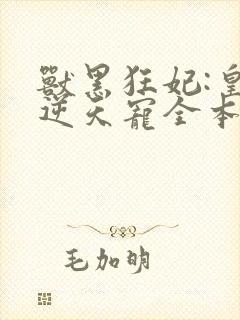 獸黑狂妃:皇
逆天寵全本
毛加明